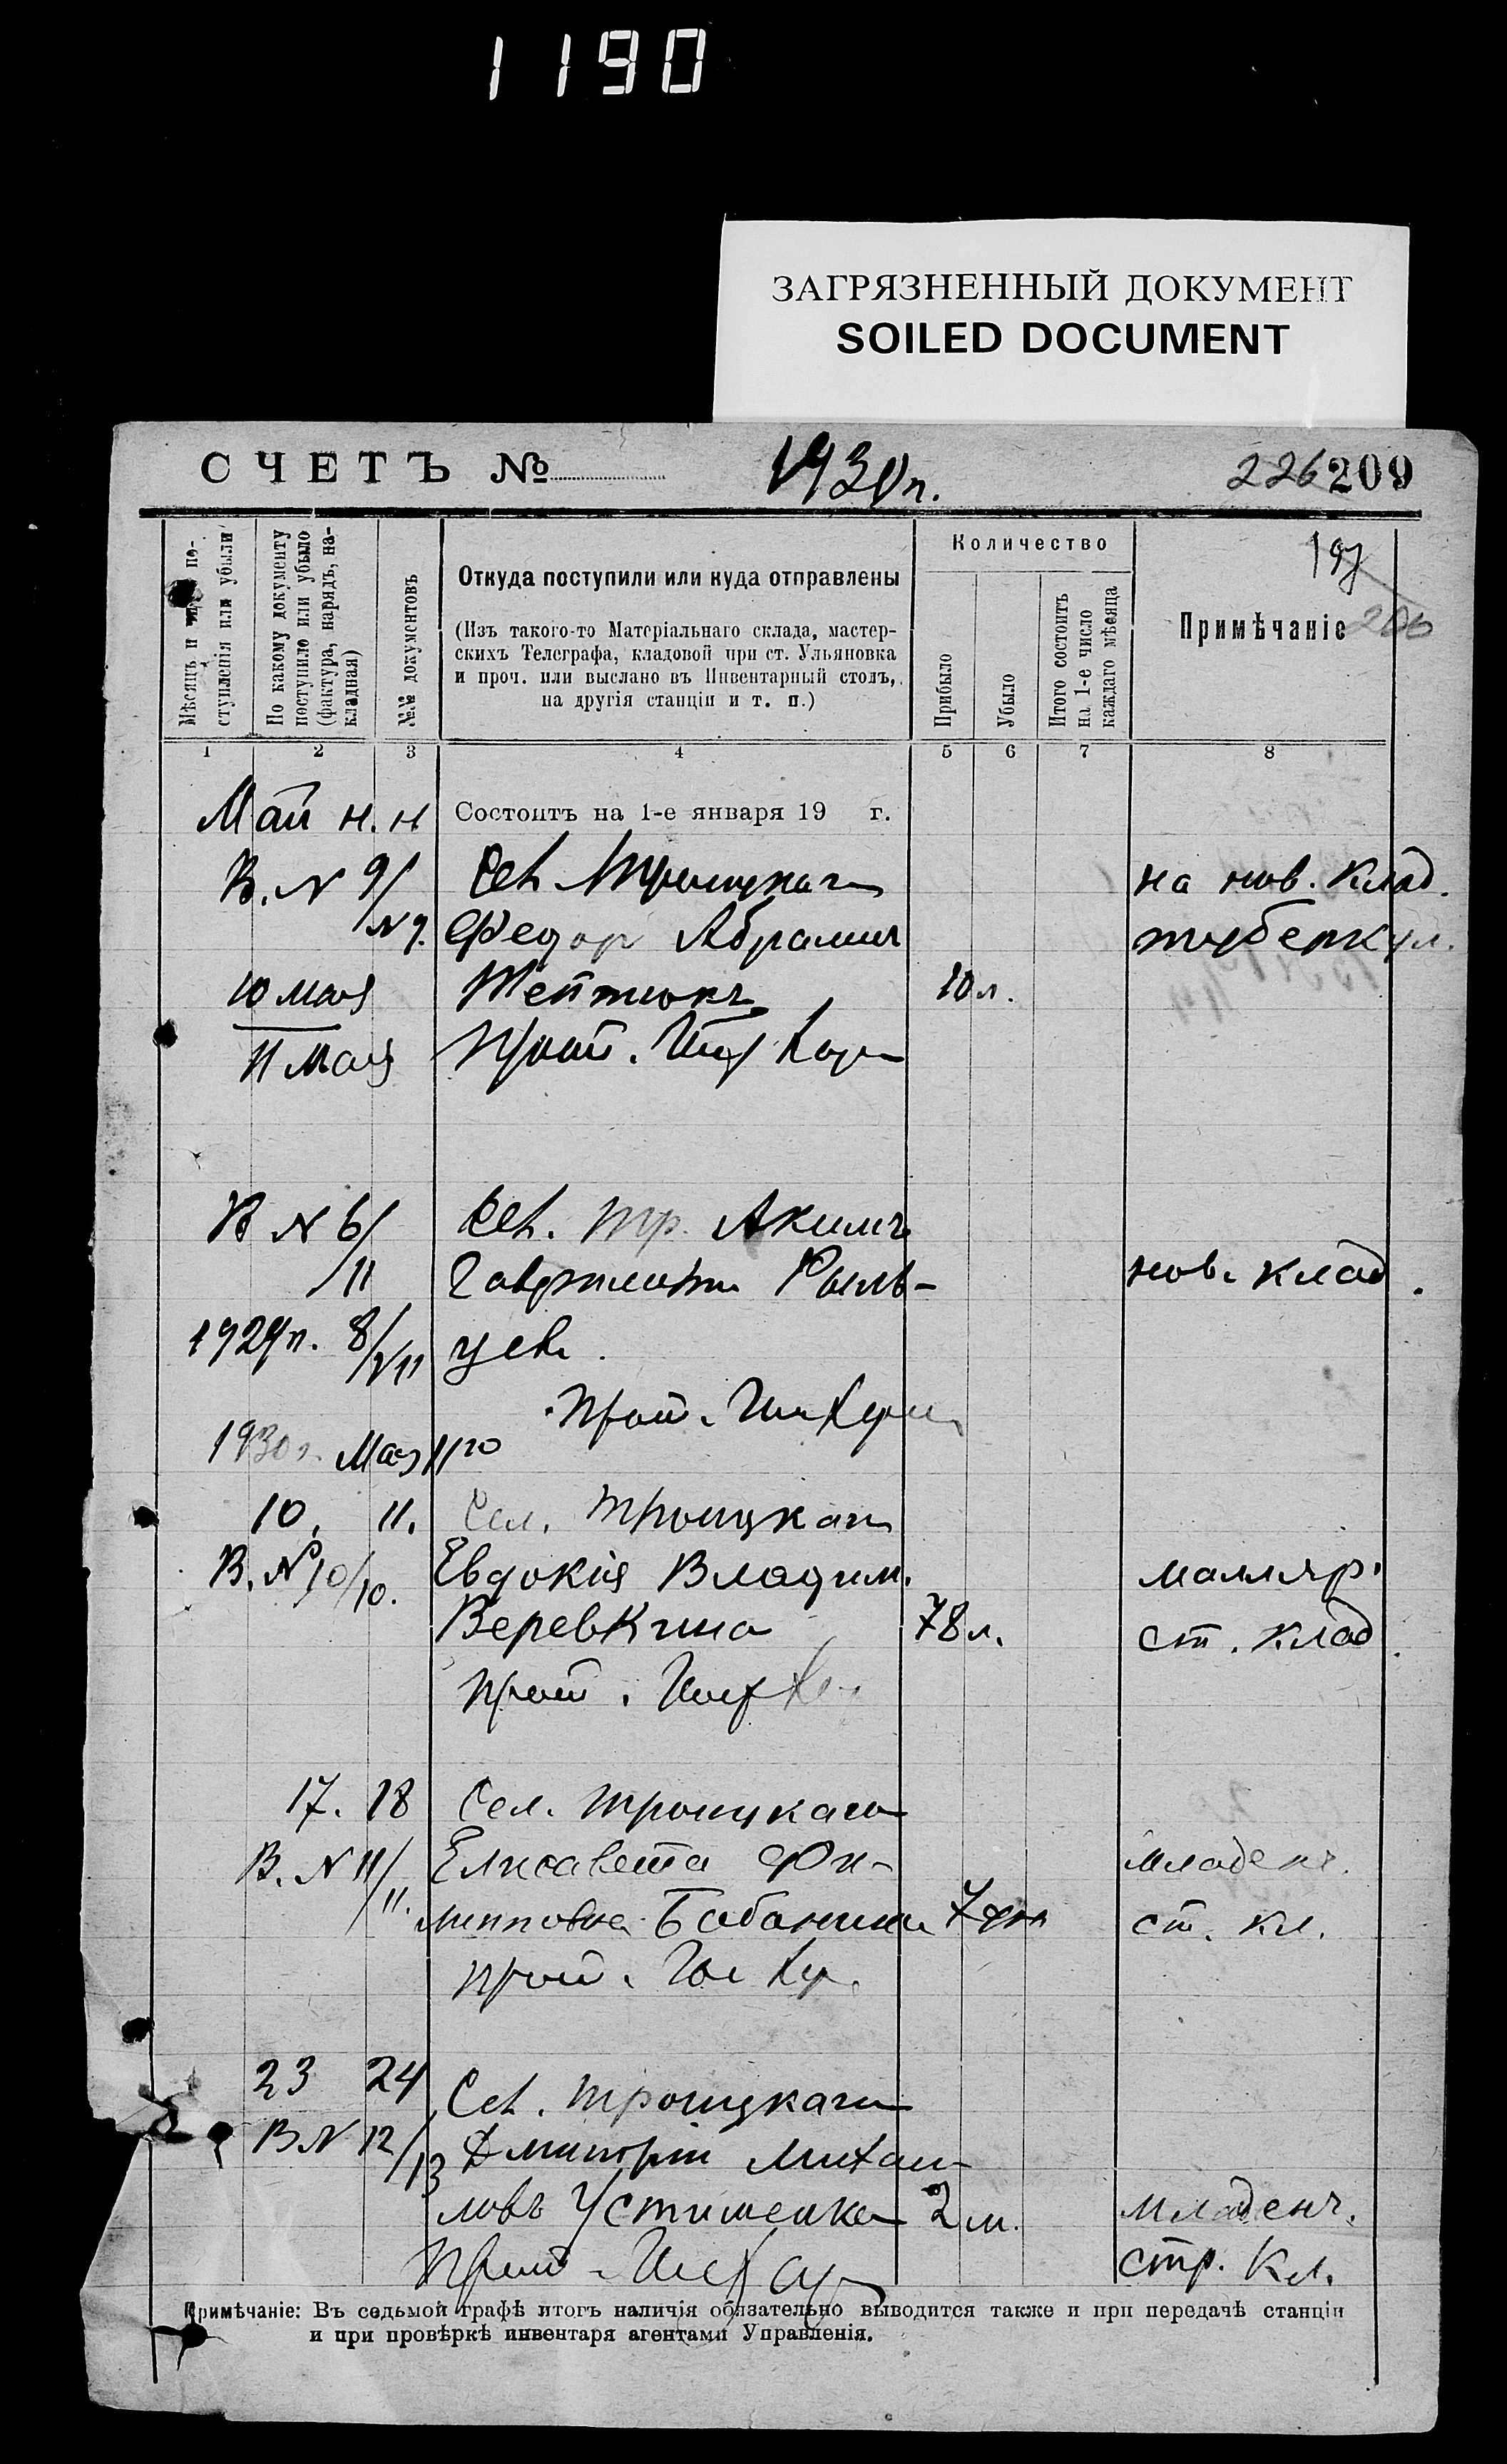 1190
ЗАГРЯЗНЕННЫЙ ДОКУМЕНТ
SOILED DOCUMENT
СЧЕТЪ № 1930 г. 226 209
197
206
Мѣсяцъ и по-
ступленія или убыли
По какому документу
поступило или убыло
(фактура, нарядъ, на-
кладная)
№№ документовъ
Откуда поступили или куда отправлены
(Изъ такого-то Матеріальнаго склада, мастер-
скихъ Телеграфа, кладовой при ст. Ульяновка
и проч. или выслано въ Инвентарный столъ,
на другія станціи и т. п.)
Количество
Прибыло
Убыло
Итого состоитъ
на 1-е число
каждаго мѣсяца
Примѣчаніе
1 2 3 4 5 6 7 8
Май н. н Состоитъ на 1-е января 19 г.
В. N 9/ Сел. Троицкаго на нов. Клад.
N 9. Федор Абрамич туберкул.
10 мая 10 л.
11 мая Прот.
В N 6/ Сел. Тр. Акимъ
/11 Рыль- нов. клад.
1929 г. 8/VII цев.
Прот.
1930 г. Мая 11го
10. 11. Сел. Троицкаго
В. № 10/10. Евдокія Владим. маляр.
Веревкина 78 л. ст. клад.
Прот.
17. 18 Сел. Троицкаго
В. N 11/ Елисавета Фи- младенч.
11. липповна Бабанина 7 дн ст. кл.
Прот.
23 24 Сел. Троицкаго
В N 12/ Дмитрій Михаи-
13 ловъ Устименко 2 м. младенч.
Прот. стр. Кл.
Примѣчаніе: Въ седьмой графѣ итогъ наличія обязательно выводится также и при передачѣ станціи
и при провѣркѣ инвентаря агентами Управленія.